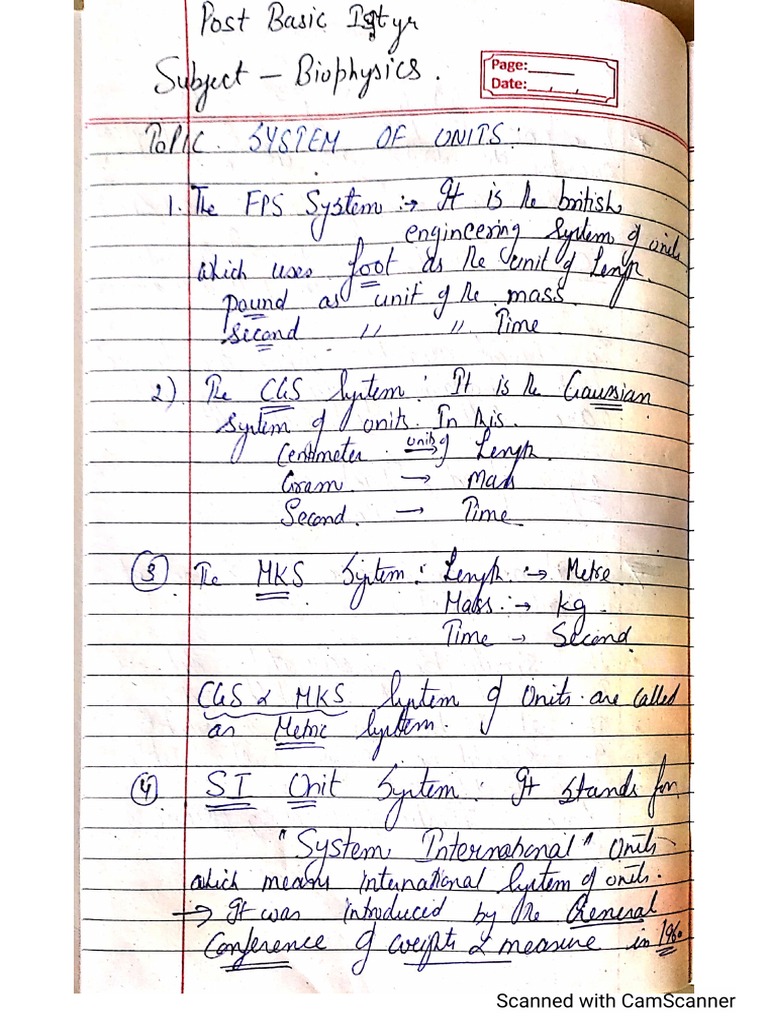 Post Basic Ist yr
Subject - Biophysics.
Page:
Date:
TOPIC. SYSTEM OF UNITS:
1. The FPS System :→ It is the british
engineering System of units
which uses foot as the unit of Length.
pound as unit of the mass.
Second " " Time
2) The CGS System: It is the Gaussian
System of units. In this.
Centimeter units of → Length.
Gram → Mass
Second. → Time
3 The MKS System: Length :→ Metre.
Mass :→ kg.
Time → Second.
CGS & MKS System of Units are called
as Metric System.
4 SI Unit System: It stands for
"System International" Units
which means international System of units.
→ It was introduced by the General
Conference of weights & measure in 1960
Scanned with CamScanner